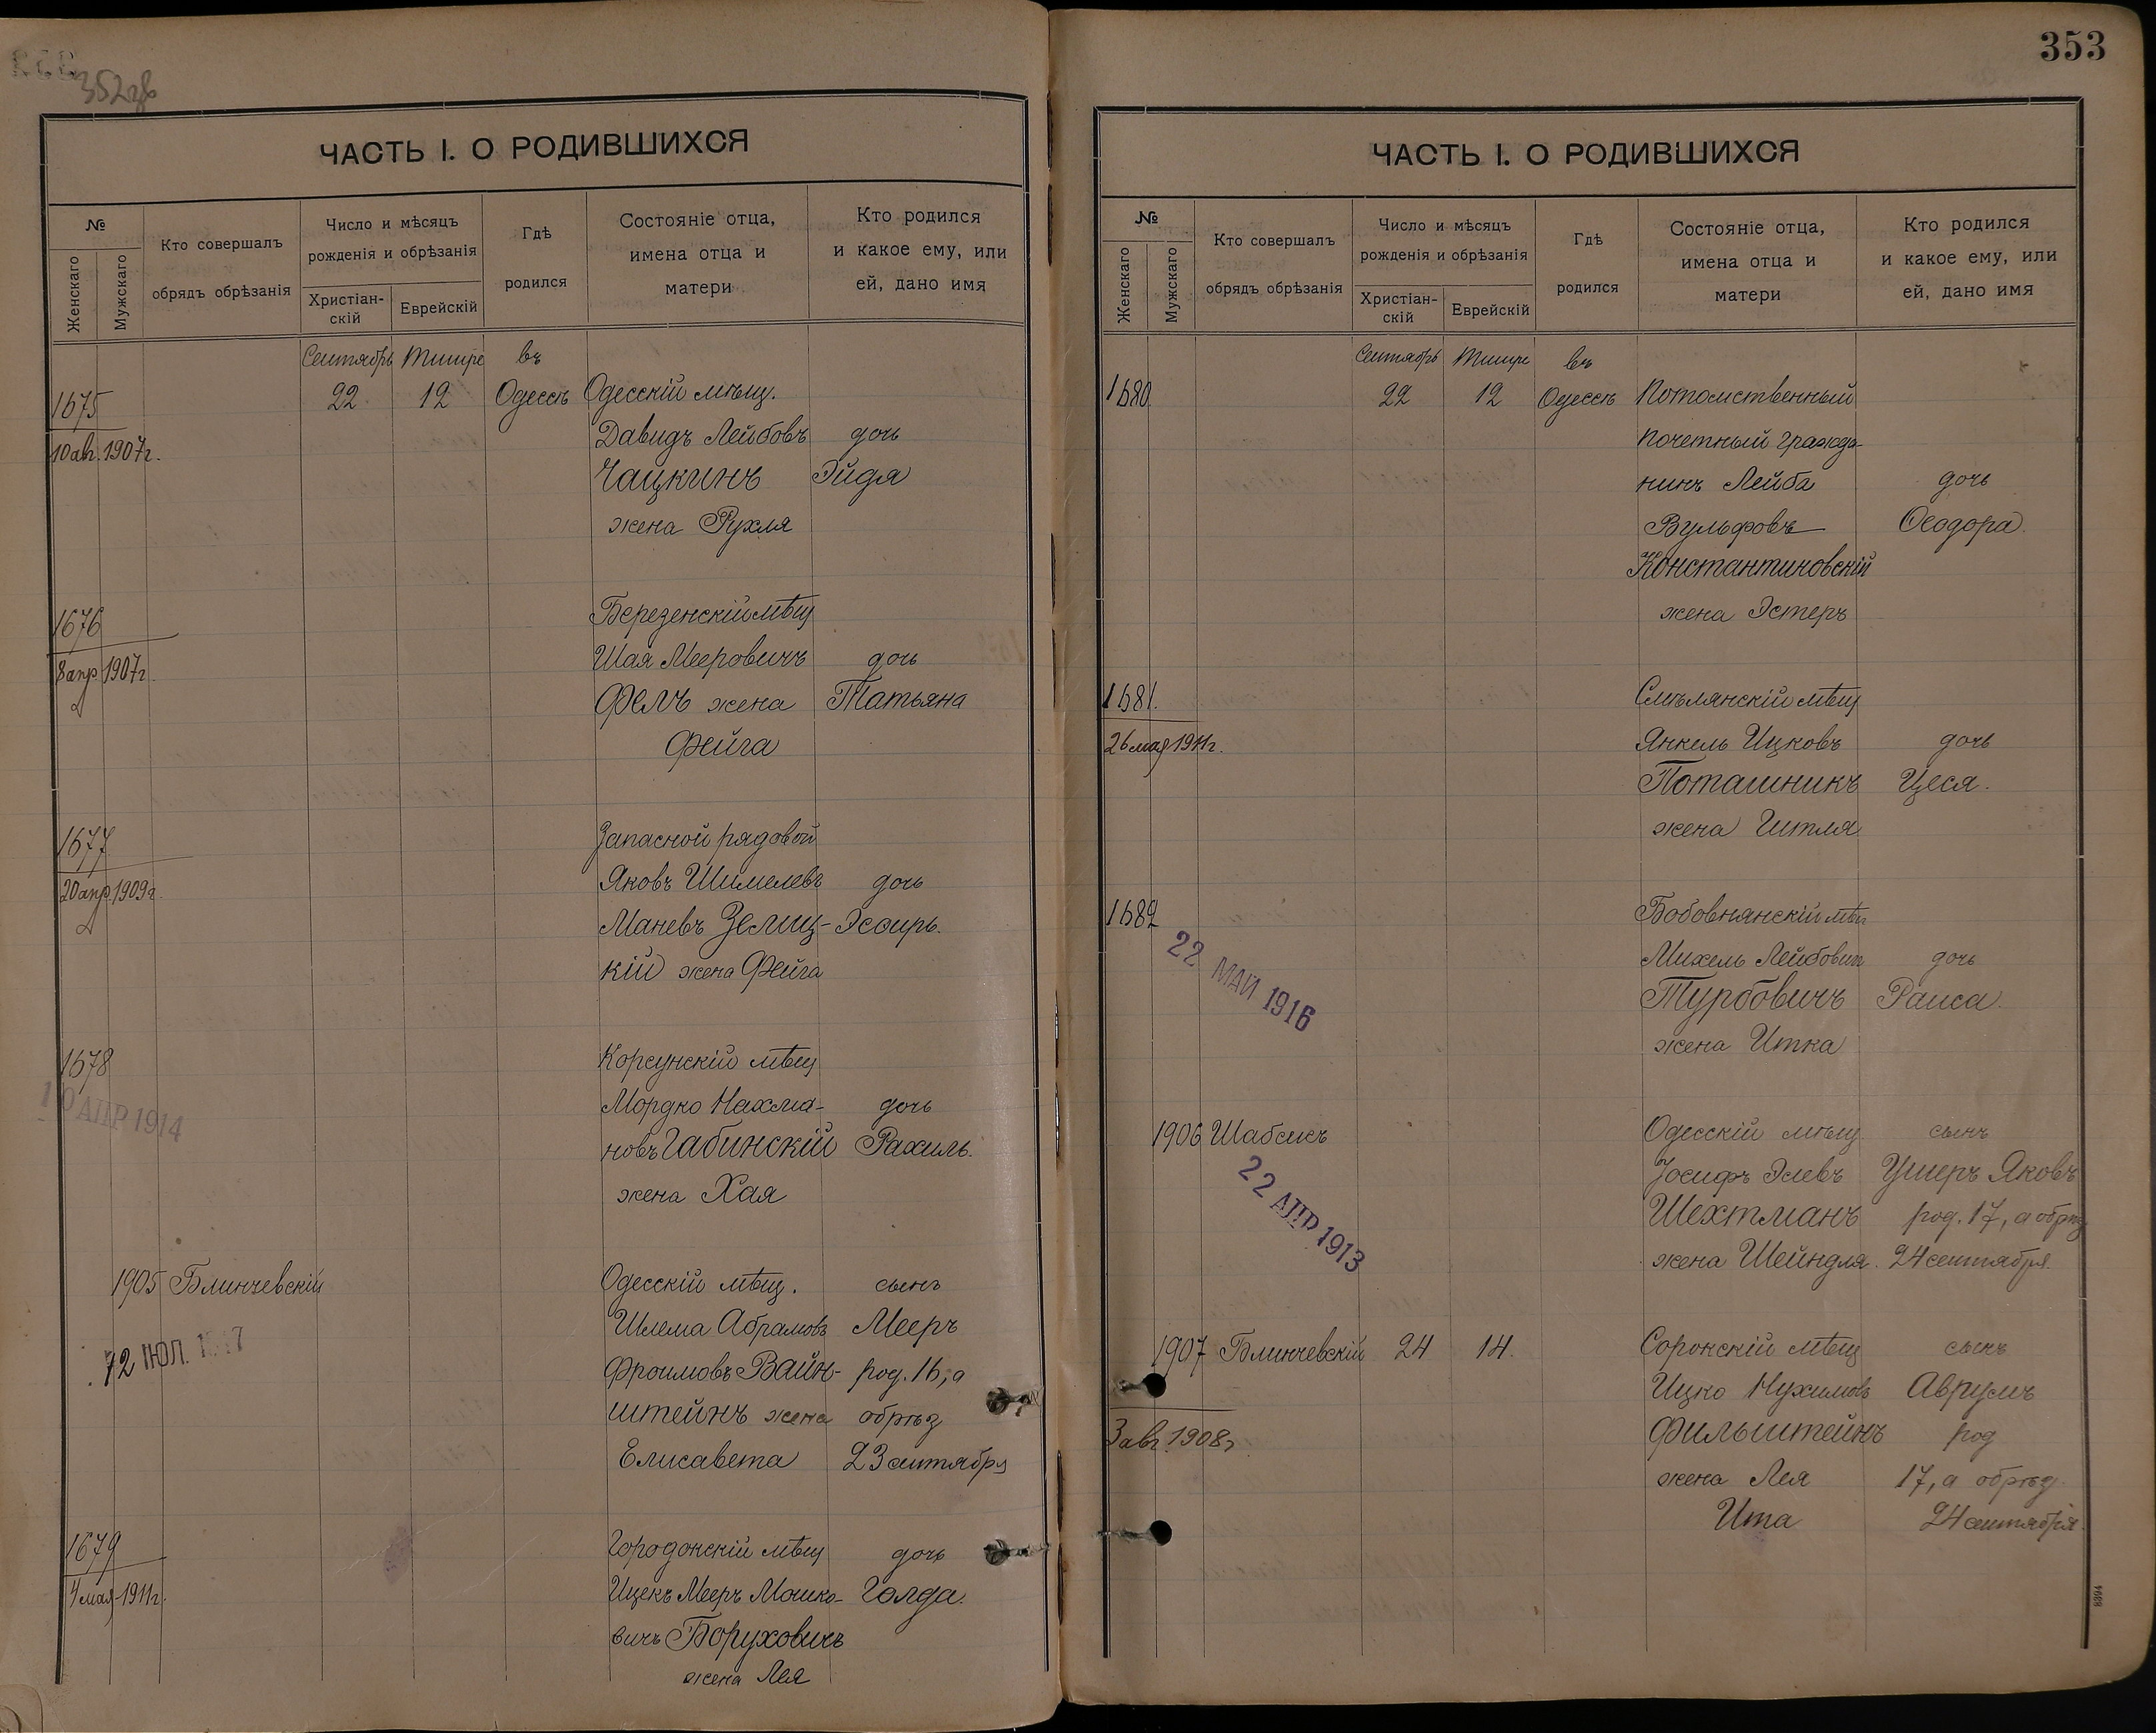 352 зв
ЧАСТЬ I. О РОДИВШИХСЯ
№
Женскаго
Мужскаго
Кто совершалъ
обрядъ обрѣзанія
Число и мѣсяцъ
рожденія и обрѣзанія
Христіан-
скій
Еврейскій
Гдѣ
родился
Состояніе отца,
имена отца и
матери
Кто родился
и какое ему, или
ей, дано имя
Сентябрь Тишре въ
1675 22 12 Одессѣ Одесскій мѣщ.
10 авг. 1907 г. Давидъ Лейбовъ дочь
Чацкинъ Эйдя
жена Рухля
1676 Березенскій мѣщ
Шая Мееровичъ дочь
8 апр. 1907 г. Фелъ жена Татьяна
Фейга
1677 Запасной рядовой
20 апр. 1909 г. Яковъ Шимелевъ дочь
Маневъ Зелиц- Эсѳирь.
кій жена Фейга
1678 Корсунскій мѣщ
10 АПР 1914 Мордко Нахма- дочь
новъ Габинскій Рахиль.
жена Хая
1905 Блинчевскій Одесскій мѣщ. сынъ
12 ІЮЛ. Шлема Абрамовъ Мееръ
Фроимовъ Вайн- род. 16, а
штейнъ жена обрѣз
Елисавета 23 сентября
1679 Городокскій мѣщ дочь
4 мая 1911 г. Ицекъ Мееръ Мошко- Голда.
вичъ Боруховичъ
жена Лея
353
ЧАСТЬ I. О РОДИВШИХСЯ
№
Женскаго
Мужскаго
Кто совершалъ
обрядъ обрѣзанія
Число и мѣсяцъ
рожденія и обрѣзанія
Христіан-
скій
Еврейскій
Гдѣ
родился
Состояніе отца,
имена отца и
матери
Кто родился
и какое ему, или
ей, дано имя
Сентябрь Тишре въ
1680 22 12 Одессѣ Потомственный
почетный гражда-
нинъ Лейба дочь
Вульфовъ Ѳеодора.
Константиновскій
жена Эстеръ
1681. Смѣлянскій мѣщ
26 мая 1911 г. Янкель Ицковъ дочь
Поташникъ Цеся.
жена Гитля
1682 Бобовнянскій мѣщ
22 МАЙ 1916 Михель Лейбовичъ дочь
Турбовичъ Раиса
жена Итка
1906 Шабсисъ Одесскій мѣщ сынъ
22 АПР 1913 Іосифъ Элевъ Ушеръ Яковъ
Шехтманъ род. 17, а обрѣз
жена Шейндля. 24 сентября.
1907 Блинчевскій 24 14. Сорокскій мѣщ сынъ
Ицко Нухимовъ Аврумъ
3 авг. 1908 г Фильштейнъ род
жена Лея 17, а обрѣз
Ита 24 сентября.
8394